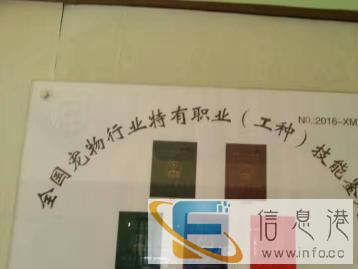 NO.:2016-XM
全国宠物行业特有职业（工种）技能鉴
信息港
www.infocc.cc